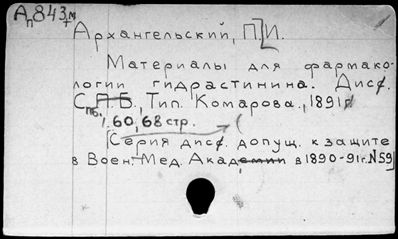 Ап843тм
Архангельский, П[И.
Материалы для фармако-
логии гидрастинина. Дисс.
С.П.Б., Тип. Комарова, 1891
Пб.
1. 60, 68 стр.
(Серия дисс. допущ. к защите
в Воен. Мед. Академии в 1890-91 г. №59]